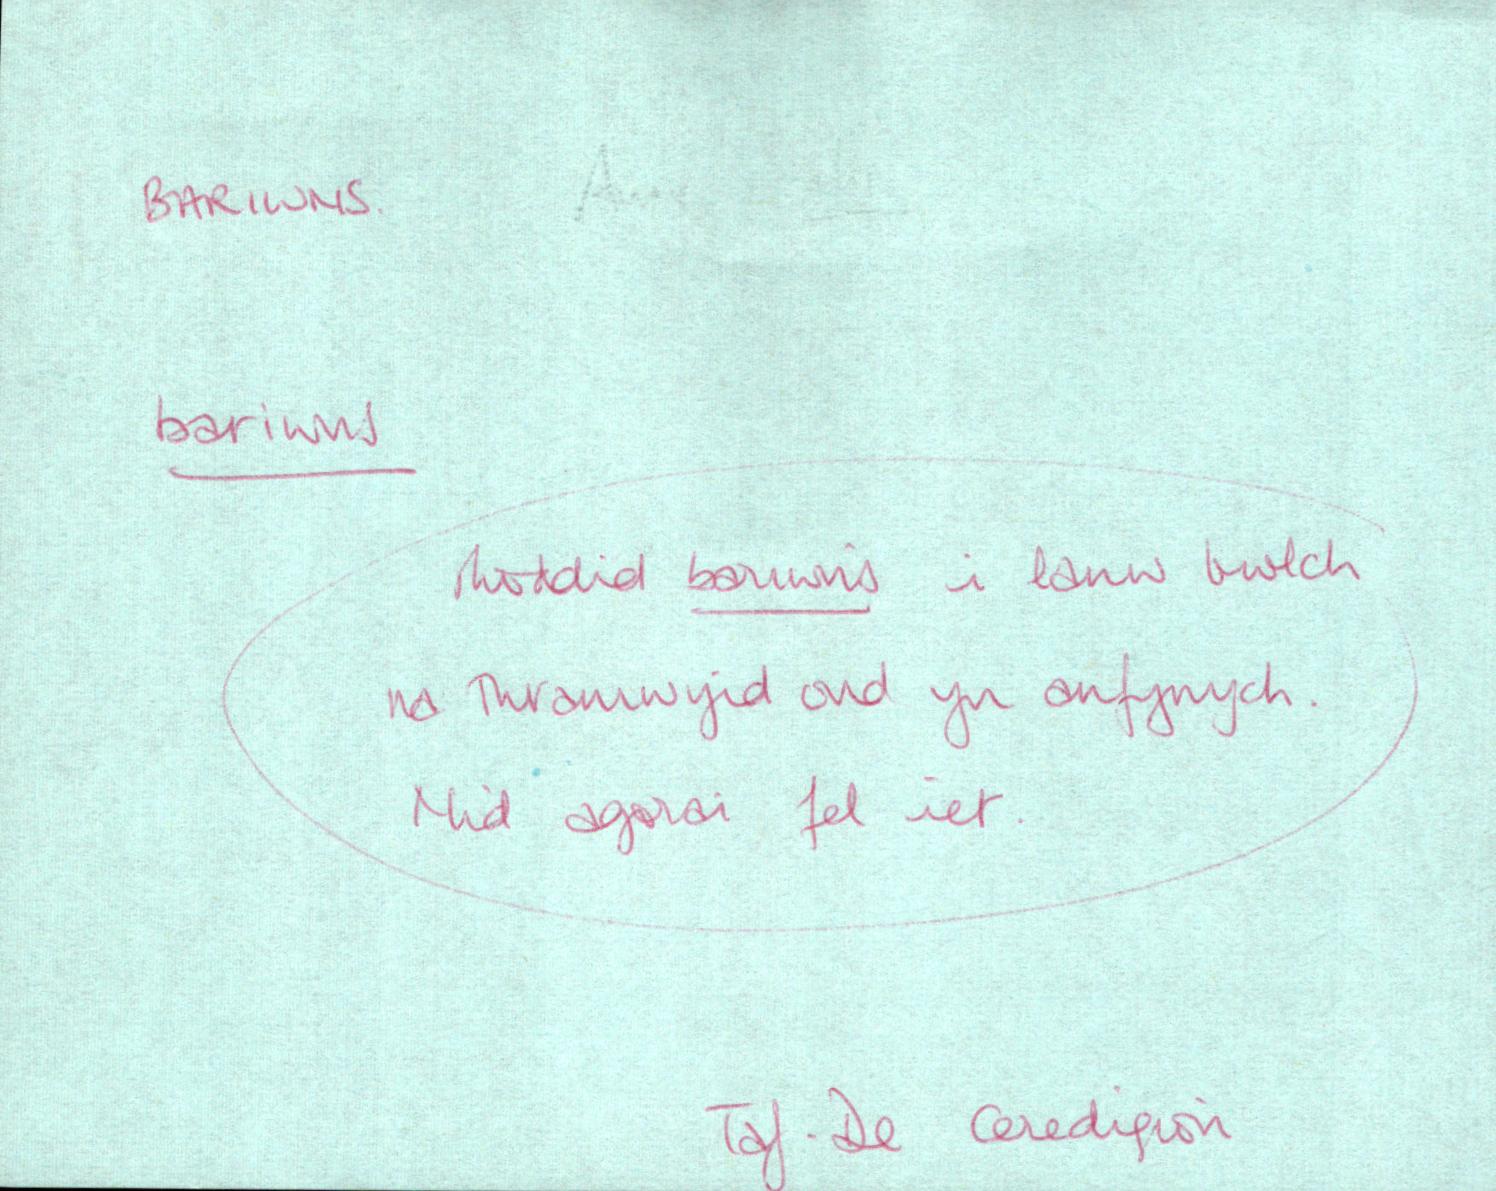 BARIWNS.
bariwns
Rhoddid bariwns i lanw bwlch
na thramwyid ond yn anfynych.
Nid agorai fel iet.
Taf. De Ceredigion